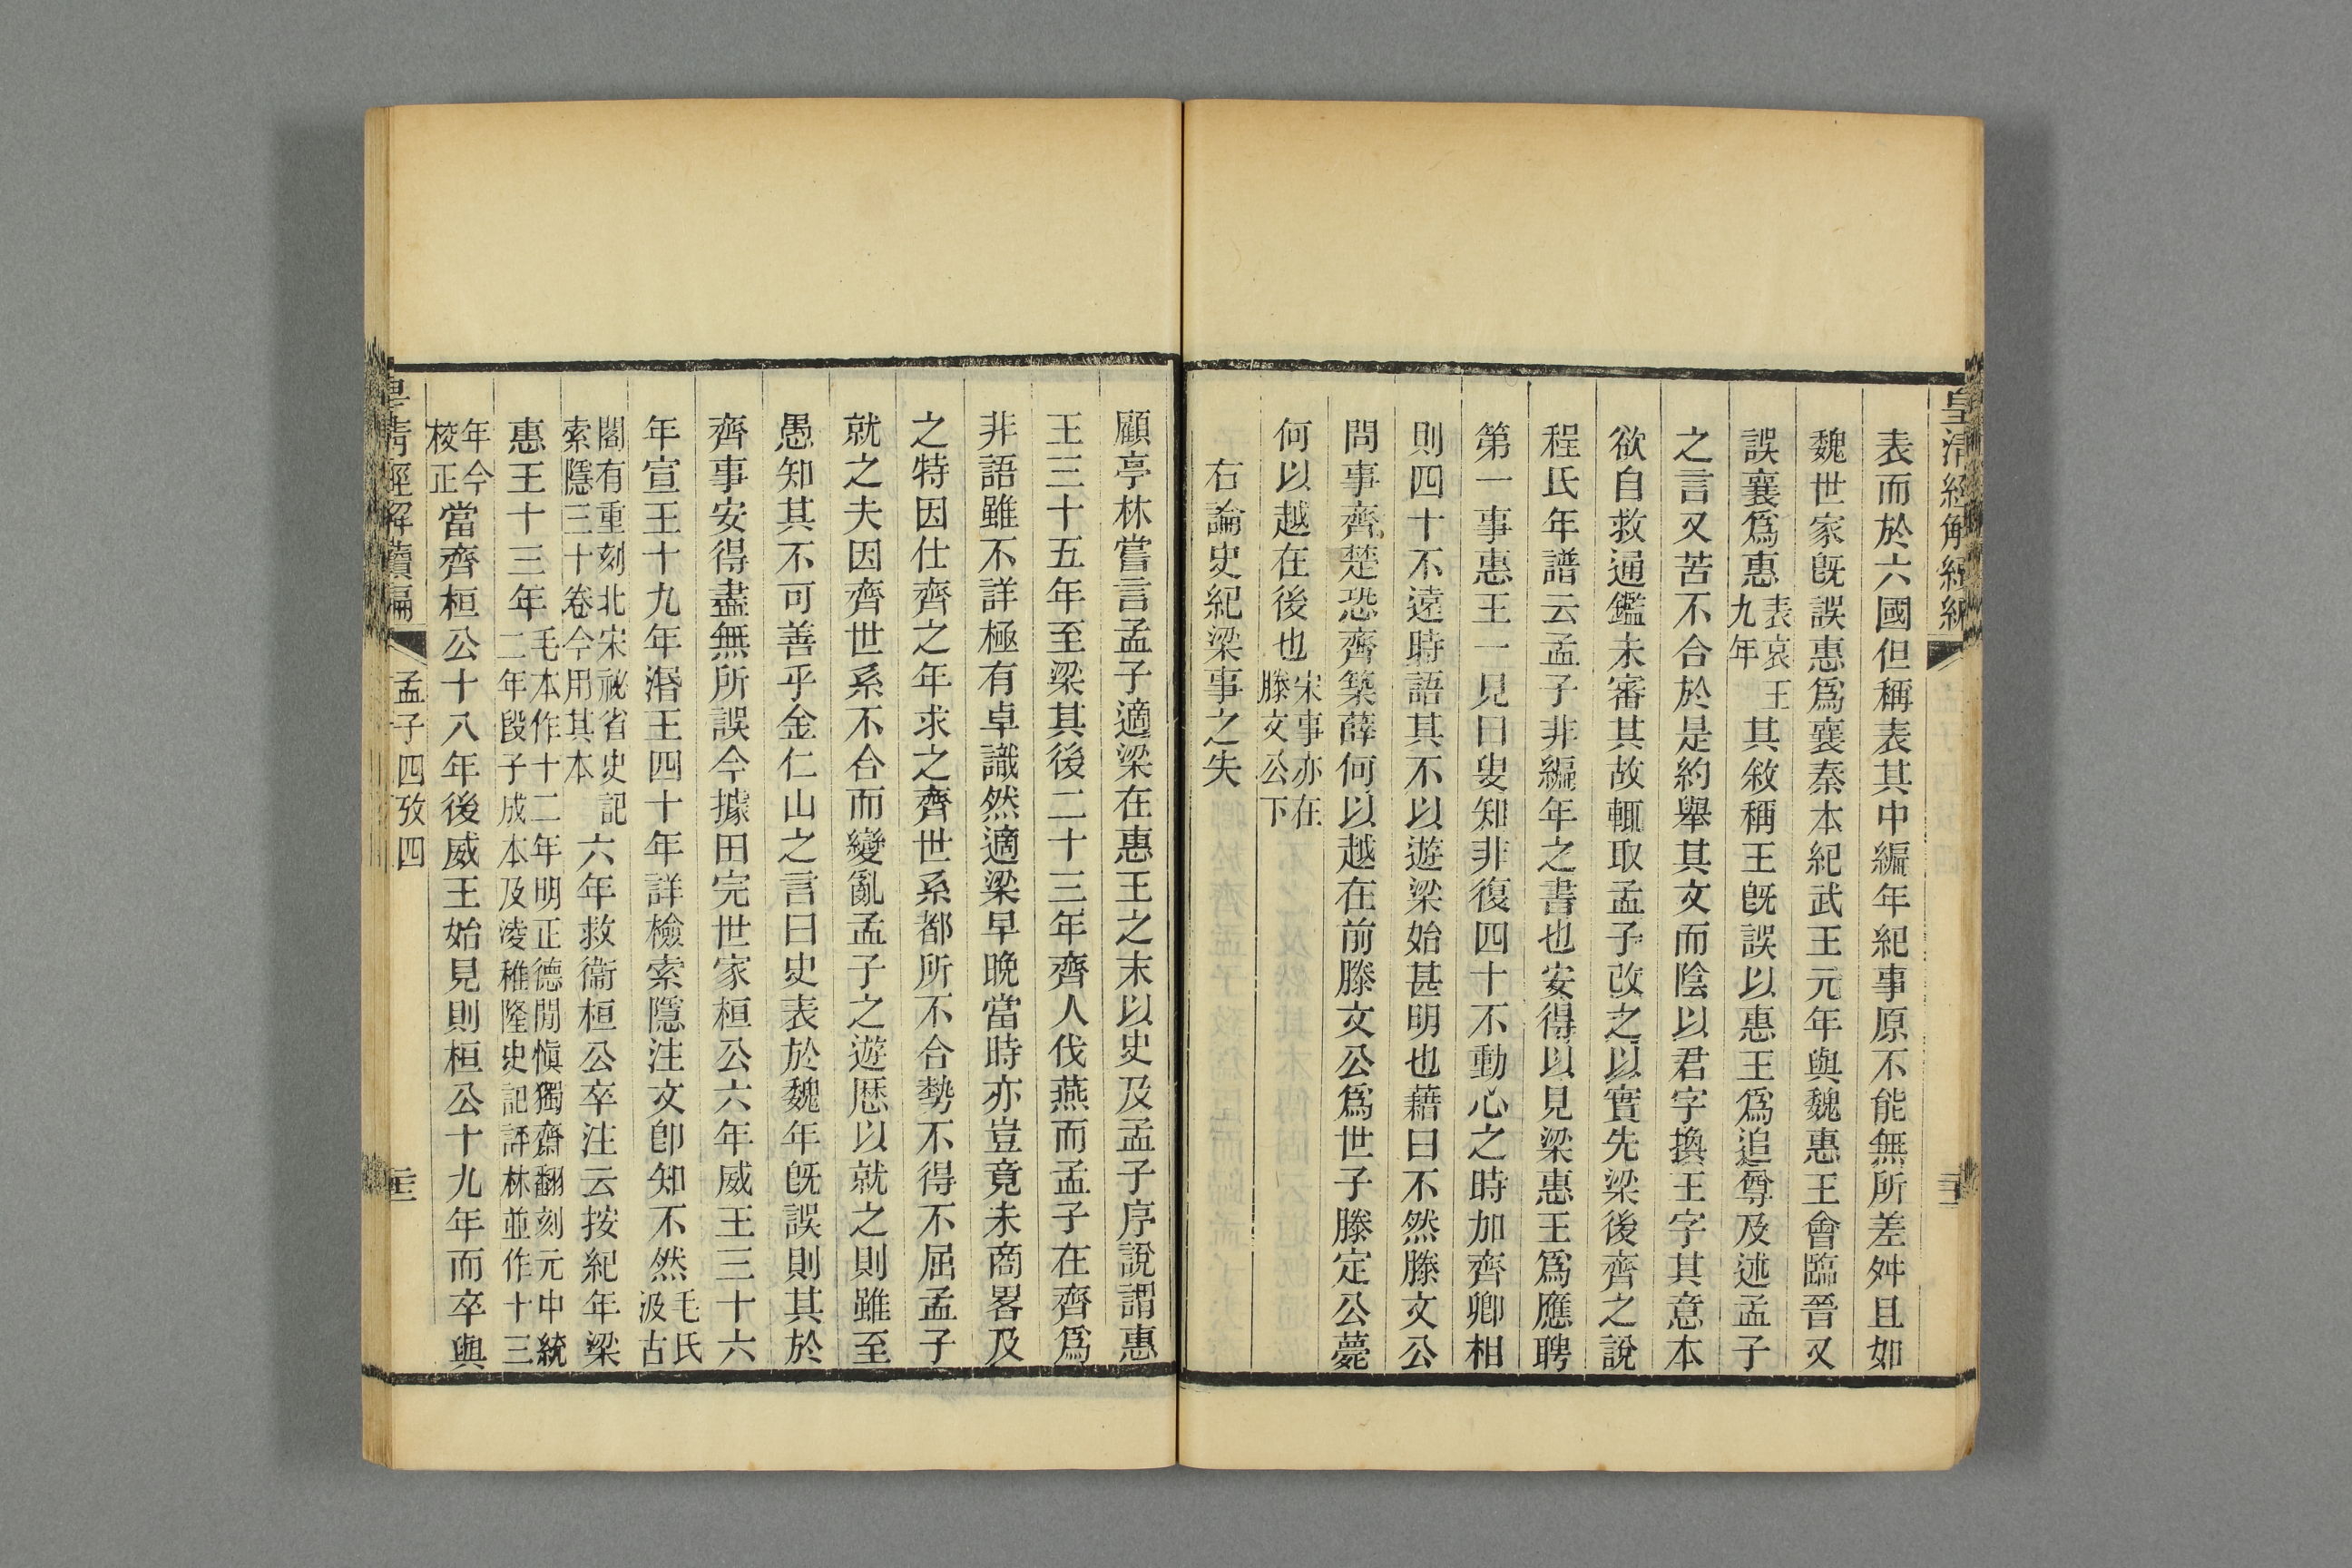 皇清經解續編
表而於六國但稱表其中編年紀事原不能無所差舛且如
魏世家旣誤惠爲襄秦本紀武王元年與魏惠王會臨晉又
誤襄爲惠表哀王九年其敘稱王旣誤以惠王爲追尊及述孟子
之言又苦不合於是約舉其文而陰以君字換王字其意本
欲自救通鑑未審其故輒取孟子改之以實先梁後齊之說
程氏年譜云孟子非編年之書也安得以見梁惠王爲應聘
第一事惠王一見曰叟知非復四十不動心之時加齊卿相
則四十不遠時語其不以遊梁始甚明也藉曰不然滕文公
問事齊楚恐齊築薛何以越在前滕文公爲世子滕定公薨
何以越在後也宋事亦在滕文公下
右論史紀梁事之失
顧亭林嘗言孟子適梁在惠王之末以史及孟子序說謂惠
王三十五年至梁其後二十三年齊人伐燕而孟子在齊爲
非語雖不詳極有卓識然適梁早晚當時亦豈竟未商畧及
之特因仕齊之年求之齊世系都所不合勢不得不屈孟子
就之夫因齊世系不合而變亂孟子之遊歷以就之則雖至
愚知其不可善乎金仁山之言曰史表於魏年旣誤則其於
齊事安得盡無所誤今據田完世家桓公六年威王三十六
年宣王十九年湣王四十年詳檢索隱注文卽知不然毛氏汲古
閣有重刻北宋祕省史記索隱三十卷今用其本六年救衞桓公卒注云按紀年梁
惠王十三年毛本作十二年明正德閒愼獨齋翻刻元中統二年段子成本及淩稚隆史記評林並作十三
年今校正當齊桓公十八年後威王始見則桓公十九年而卒與
皇清經解續編
孟子四攷四